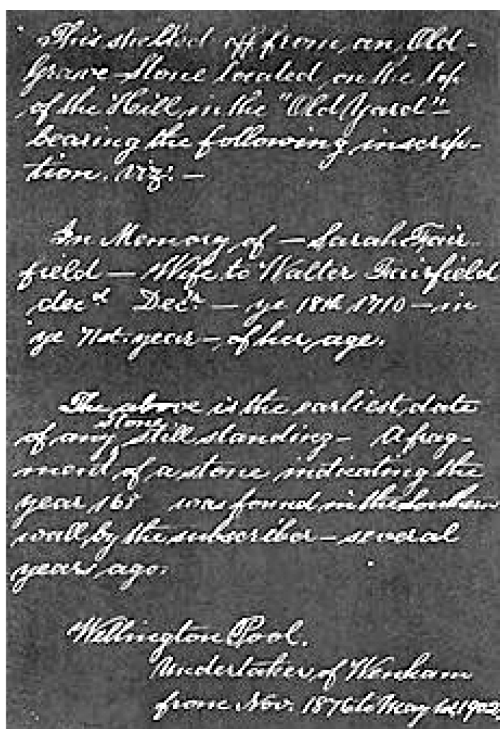 This shelled off from an Old-
Grave Stone located, on the top
of the Hill, in the "Old Yard"-
bearing the following inscrip-
tion. Viz: —
In Memory of — Sarah Fair
field — Wife to Walter Fairfield
decd Decr. — ye 18th 1710 — in
ye 71st. year — of her, age.
The above is the earliest, date
of any Stone still standing — A frag-
ment, of a stone indicating the
year 16 was found in the Southern
wall, by the subscriber — several
years, ago.
Wellington Pool.
Undertaker, of Wenham
from Nov. 1876 to May 1902